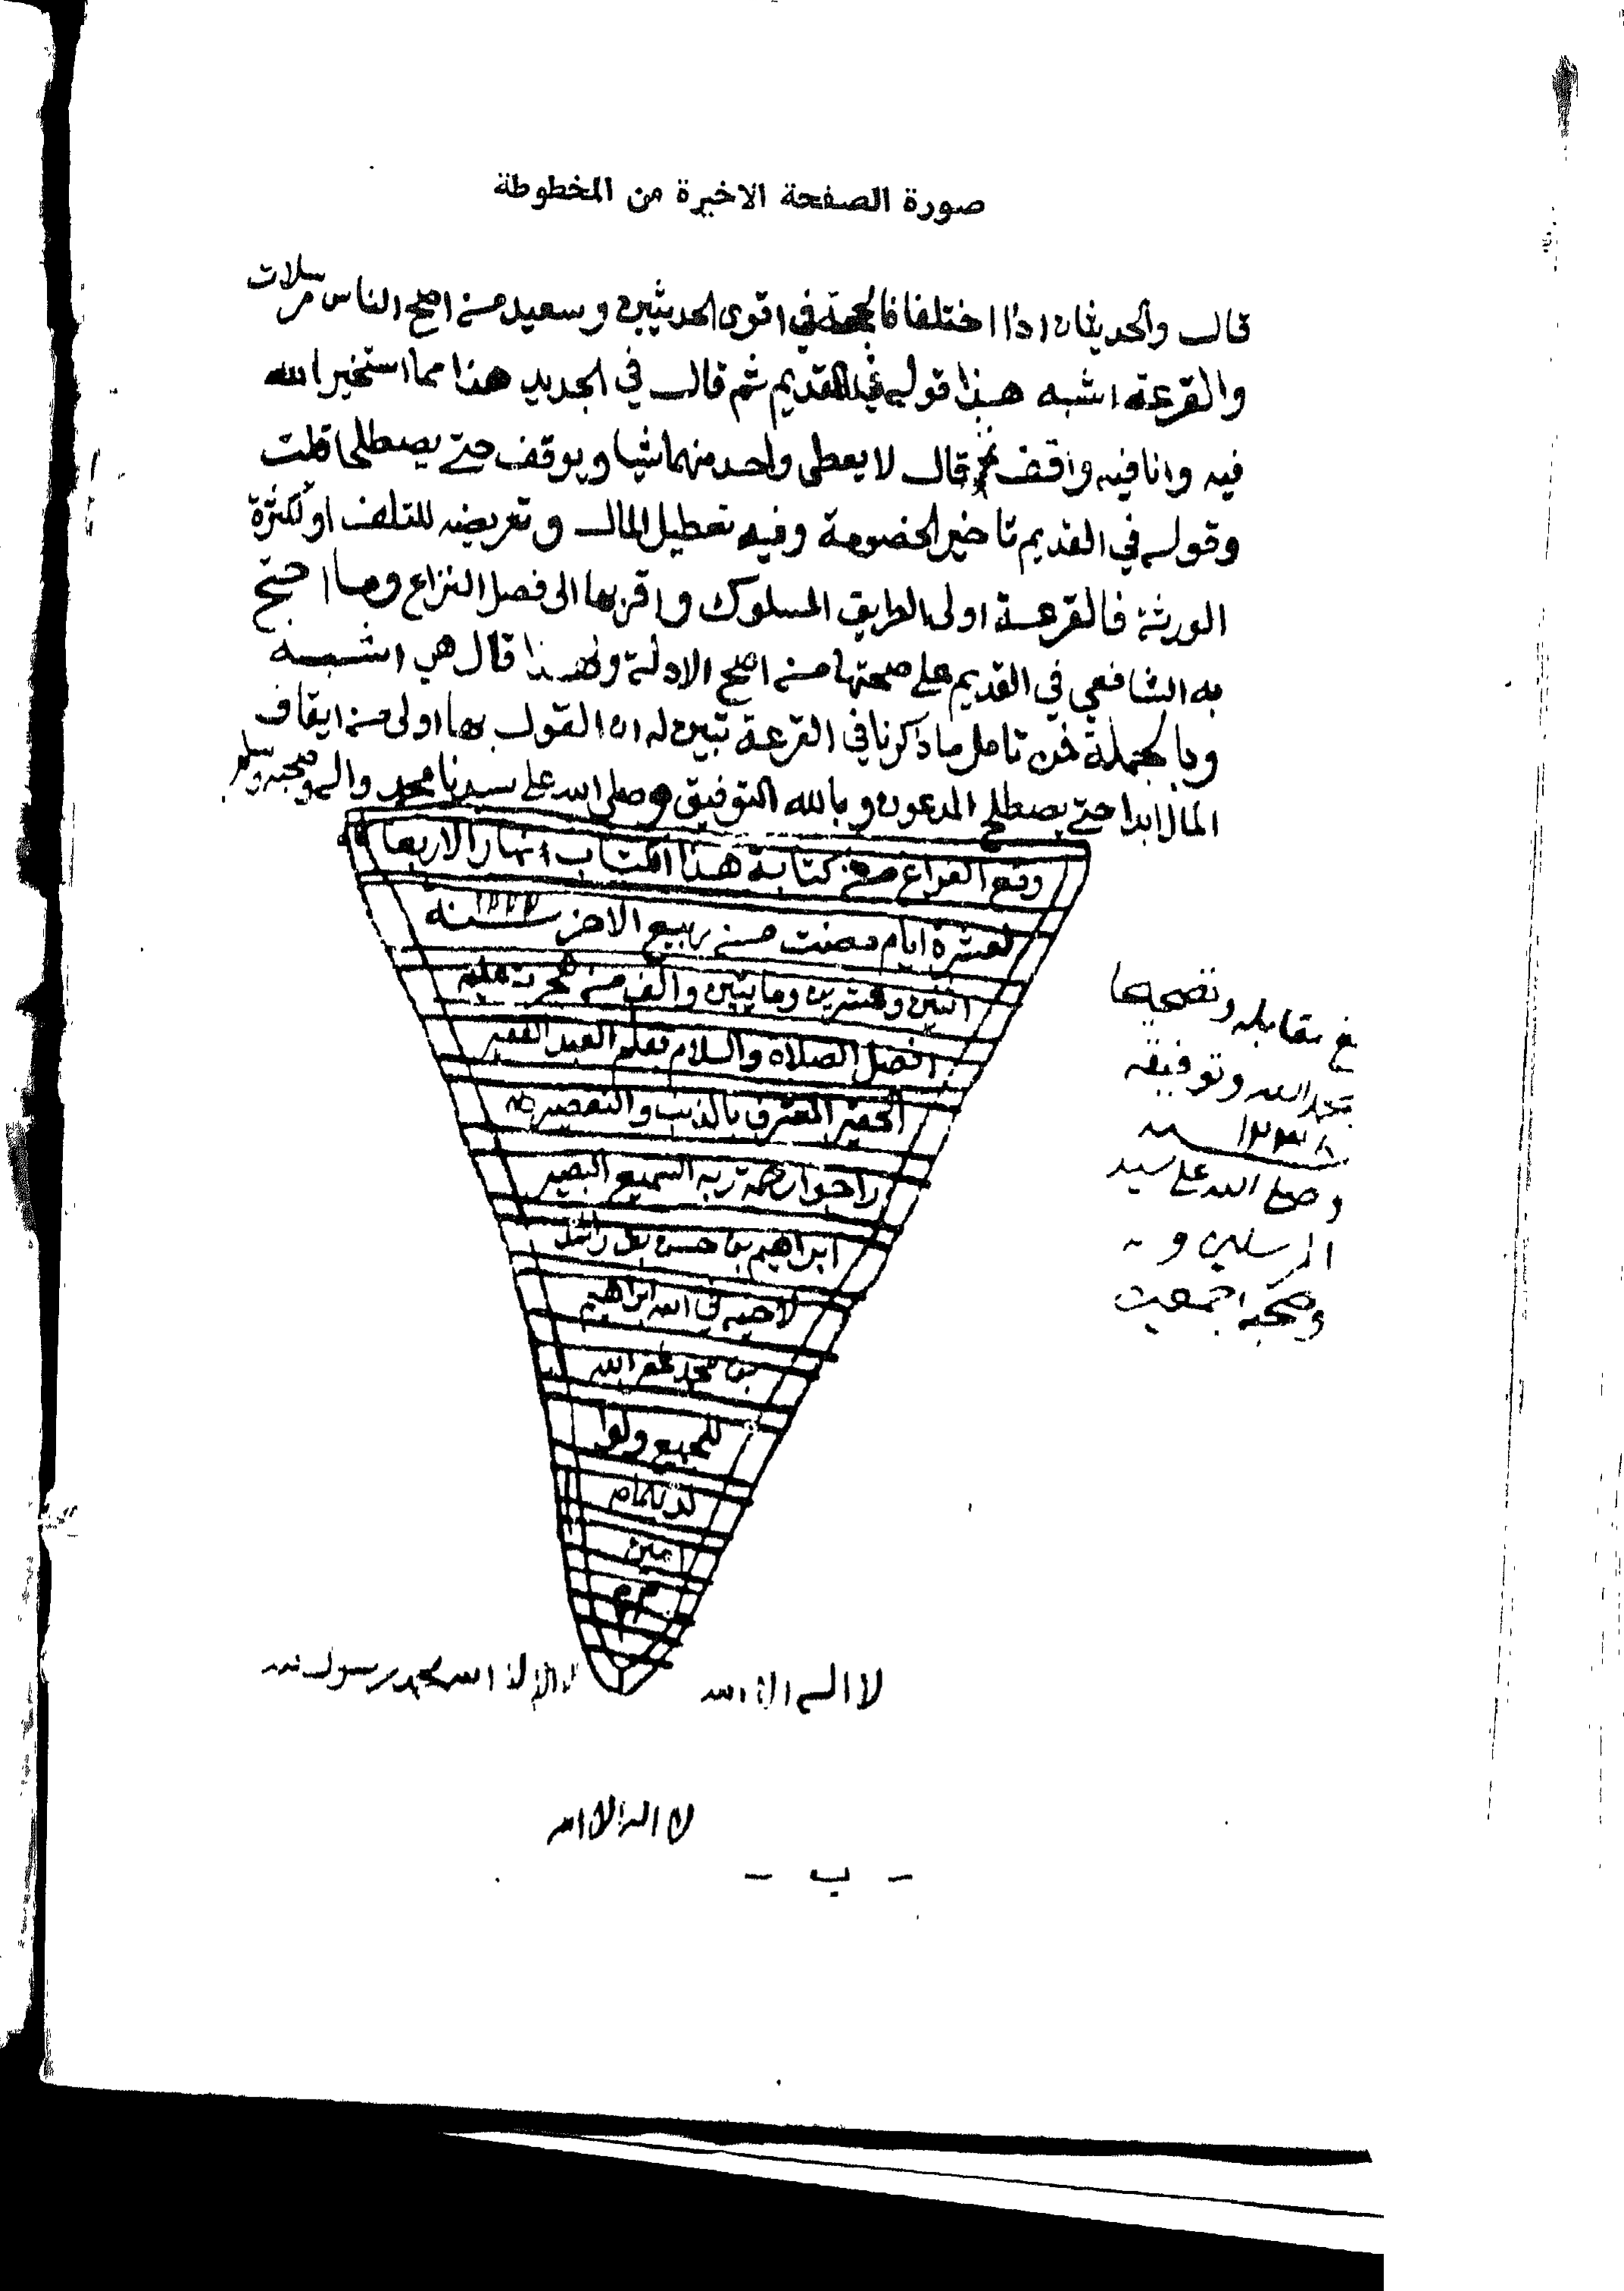 صورة الصفحة الاخيرة من المخطوطة
قال والحديثان اذا اختلفا فالحجة في اقوى الحديثين وسعيد من اصح الناس مرسلات
والقرعة اشبه هذا قوله في القديم ثم قال في الجديد هذا مما استخير الله
فيه وانا فيه واقف ثم قال لا يعطى واحد منهما شيا ويوقف حتى يصطلحا قلت
وقوله في القديم تاخير الخصومة وفيه تعطيل المال وتعريضه للتلف او لكثرة
الورثة فالقرعة اولى الطريق المسلوك واقربها الى فصل النزاع وما احتج
به الشافعي في القديم على صحتها من اصح الادلة ولهذا قال هي اشبه
وبالجملة فمن تامل ما ذكرنا في القرعة تبين له ان القول بها اولى من ايقاف
المال ابدا حتى يصطلح المدعون وبالله التوفيق وصلى الله على سيدنا محمد واله وصحبه وسلم
وقع الفراغ من كتابة هذا الكتاب نهار الاربعا
لعشرة ايام مضت من ربيع الاخر سنة ١٢٢٢
اثنين وعشرين ومايتين والف من هجرته عليه
افضل الصلاة والسلام بقلم العبد الفقير
الحقير المعترف بالذنب والتقصير
راجوا رحمة ربه السميع البصير
ابراهيم بن حسن بن راشد
لاخيه في الله ابراهيم
بن محمد غفر الله
للجميع ولوا
لديهم
امين
بلغ مقابله وتصحيحا
بحمد الله وتوفيقه
١٢٣٨
وصلى الله على سيد
المرسلين و
وصحبه اجمعين
لا اله الا الله
لا اله الا الله محمد رسول الله
لا اله الا الله
- ب -